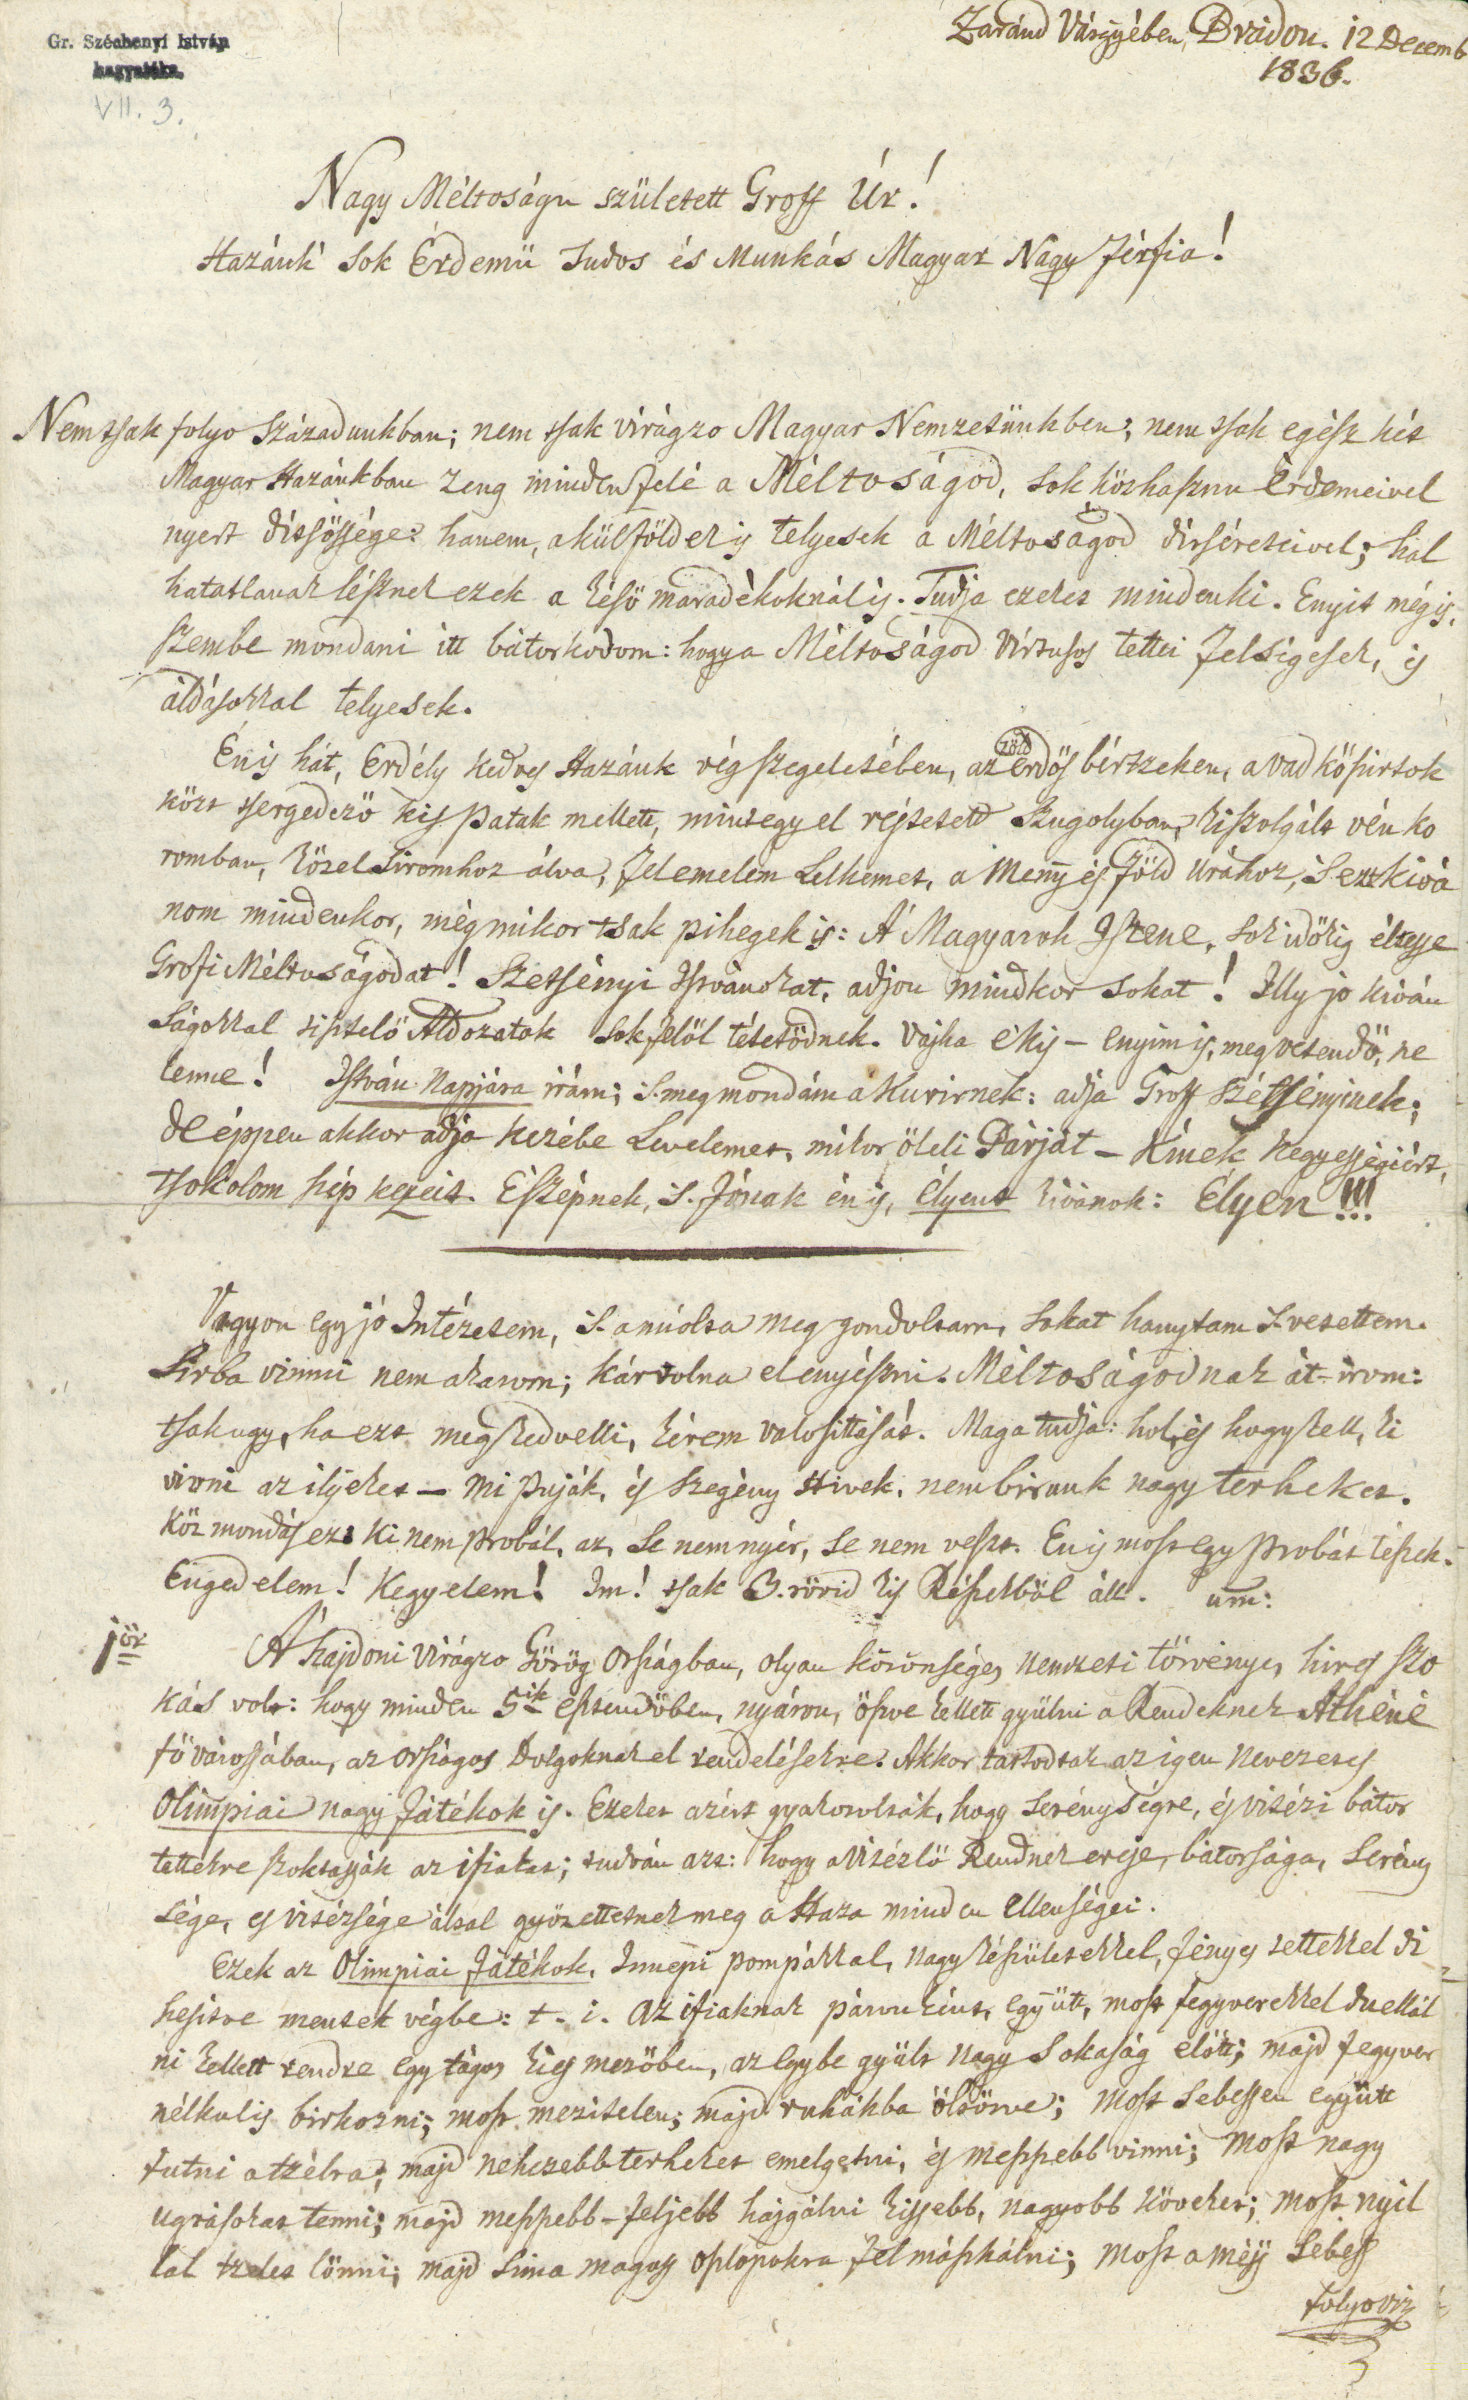 Gr. Széchenyi István
hagyatéka.
VII. 3.
Zaránd Várgyében, Brádon. 12 Decemb
1836.
Nagy Méltoságu született Groff Úr!
Hazánk' sok Érdemü Tudos és Munkás Magyar Nagy Férfia!
Nem tsak folyo Századunkban; nem tsak virágzo Magyar Nemzetünkben; nem tsak egész két
Magyar Hazánkban zeng mindenfelé a Méltoságod, sok közhasznu Érdemeivel
nyert ditsössége: hanem, a külföldek is telyesek a Méltoságod dirséreteivel; hal
hatatlanak lésznek ezek a késö maradékoknál is. Tudja ezeket mindenki. Enyit mégis,
szembe mondani itt bátorkodom: hogy a Méltoságod Virtusos tettei Felségesek, is
áldásokkal telyesek.
Én is hát, Erdély kedves Hazánk vég szegeletében, az zöld erdös bértzeken, a vad kösirtok
közt tsergedezö kis patak mellett, mint egy el rejtetett Szugolyban, kiszolgált vén ko
romban, közel Siromhoz álva, fel emelem Lelkemet, a Meny és Föld Urához, S ezt kivá
nom mindenkor, még mikor tsak pihegek is: A' Magyarok Istene, sok idökig éltesse
Grofi Méltoságodat! Szetsényi Istvánokat, adjon mindkor sokat! Illy jo kiván
ságokkal tisztelö Áldozatok sok felöl tétetödnek. Vajha e' kis – enyim is, meg vetendö, ne
lenne! István Napjára irám; S. meg mondám a Kurirnek: adja Groff Szétsényinek;
De éppen akkor adja kezébe Levelemet, mikor öleli Párját – Kinek kegyességiért,
tsokolom szép kezeit. E Szépnek, S. Jónak én is, élyent kivánok: Élyen!!!
Vagyon egy jó Intézetem, S. a miolta meg gondoltam, sokat hánytam S. vetettem.
Sirba vinni nem akarom; kár volna el enyészni. Méltoságodnak át-irom:
tsak ugy, ha ezt meg kedvelli, kérem valosittását. Maga tudja: hol, és hogy kell, ki
vivni az ilyeket – mi puják, és szegény Hivek, nem birunk nagy terheket.
Köz mondás ez: Ki nem probál, az, se nem nyér, se nem veszt. Én is most egy probát tészek.
Engedelem! Kegyelem! Im! tsak 3. rövid kis Részekböl áll. um:
1ör A hajdoni virágzo Görög Országban, olyan közönséges nemzeti törvényes hires szo
kás volt: hogy minden 5ik esztendöben, nyáron, öszve kellett gyülni a Rendeknek Athéné
fö várossában, az országos Dolgoknak el rendelésekre. Akkor tartodtak az igen nevezetes
Olimpiai nagy Játékok is. Ezeket azért gyakorolták, hogy serénységre, és vitézi bátor
tettekre szoktassák az ifiakat; tudván azt: hogy a Vitézlö Rendnek ereje, bátorsága, serény
sége, és vitézsége által gyözettetnek meg a Haza minden Ellenségei.
Ezek az Olimpiai Játékok, Innepi pompákkal, nagy készületekkel, fényes tettekkel di
hesitve mentek végbe: t. i. az ifiaknak páronként, együtt, most fegyverekkel duellál
ni kellett rendre egy tágos kies mezöben, az egybe gyült nagy Sokaság elött; majd fegyver
nélkulis birkozni; most mezitelen; majd ruhákba öltözve; most sebessen együtt
futni a tzélra; majd nehezebb terheket emelgetni, és messzebb vinni; most nagy
ugrásokat tenni; majd messzebb-feljebb hajgálni kissebb, nagyobb köveket; most nyil
lal tzelet lönni; majd sima magas oszlopokra fel mászkálni; most a méj sebess
folyoviz